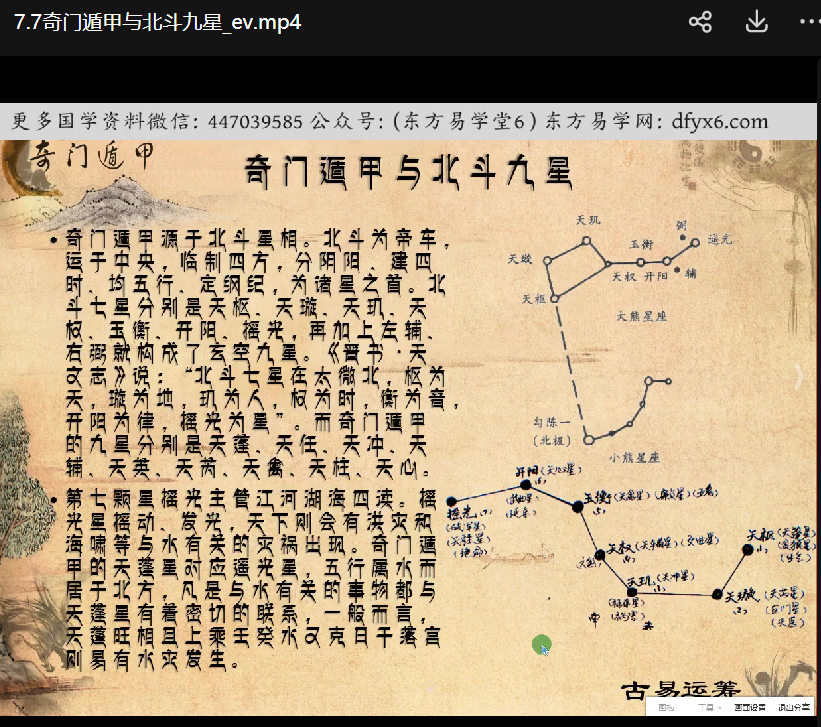 7.7奇门遁甲与北斗九星_ev.mp4
更多国学资料微信: 447039585 公众号: (东方易学堂6) 东方易学网: dfyx6.com
奇门遁甲
奇门遁甲与北斗九星
• 奇门遁甲源于北斗星相。北斗为帝车，
运于中央，临制四方，分阴阳、建四
时、均五行、定纲纪，为诸星之首。北
斗七星分别是天枢、天璇、天玑、天
权、玉衡、开阳、摇光，再加上左辅、
右弼就构成了玄空九星。《晋书·天
文志》说：“北斗七星在太微北，枢为
天，璇为地，玑为人，权为时，衡为音，
开阳为律，摇光为星”。而奇门遁甲
的九星分别是天蓬、天任、天冲、天
辅、天英、天芮、天禽、天柱、天心。
• 第七颗星摇光主管江河湖海四渎。摇
光星摇动、发光，天下则会有洪灾和
海啸等与水有关的灾祸出现。奇门遁
甲的天蓬星对应遥光星，五行属水而
居于北方，凡是与水有关的事物都与
天蓬星有着密切的联系，一般而言，
天蓬旺相且上乘壬癸水又克日干落宫
则易有水灾发生。
天玑
弼
玉衡
遥光
天璇
天权
开阳
辅
天枢
大熊星座
勾陈一
(北极)
小熊星座
开阳
摇光
玉衡
天权
天玑
天璇
天枢
古易运筹
画板
工具
画面设置
退出分享